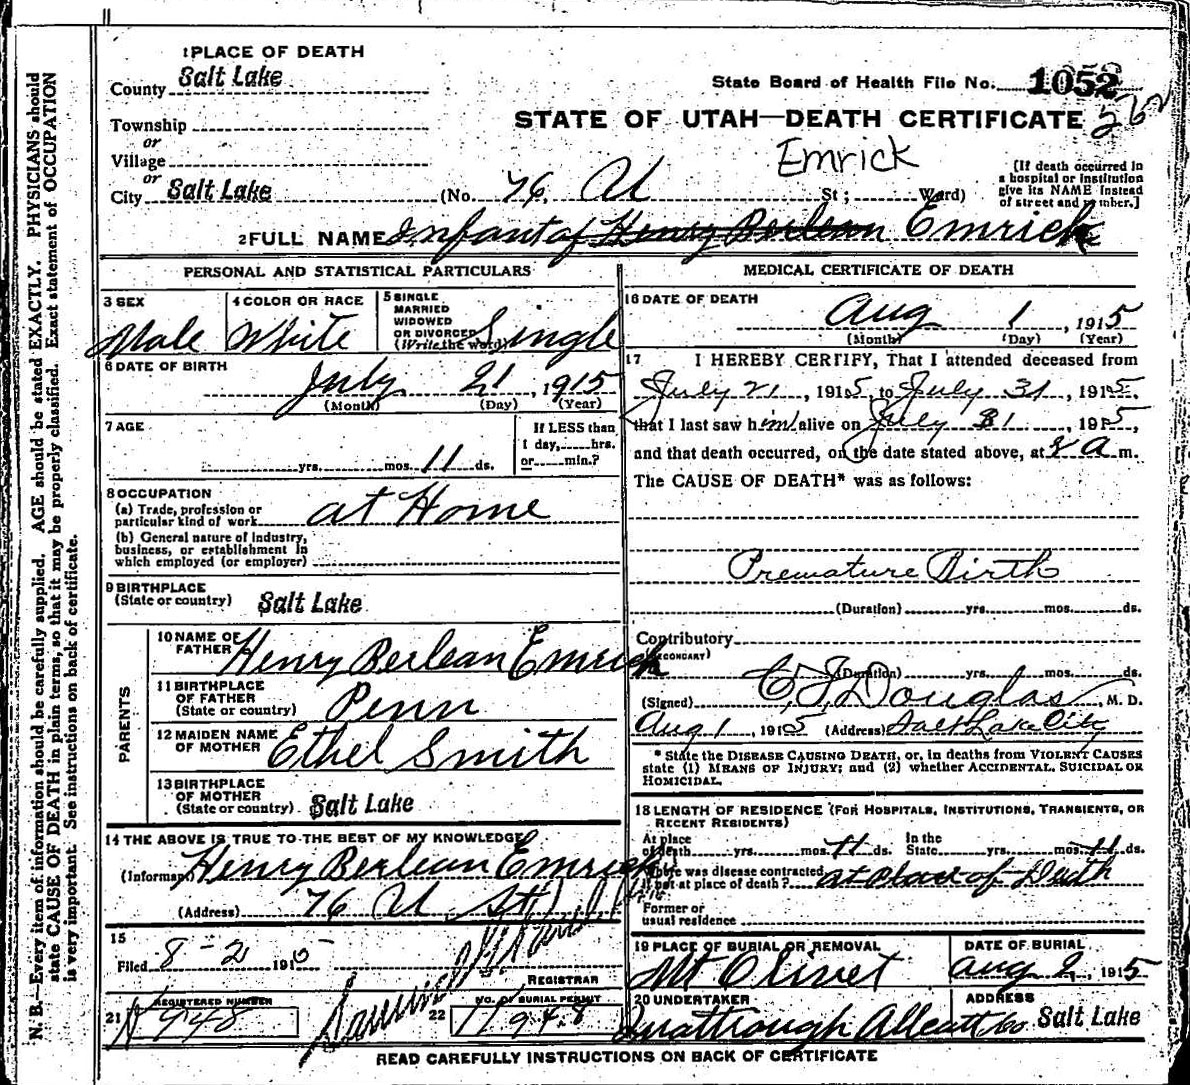 1 PLACE OF DEATH
County Salt Lake
State Board of Health File No. 1052
Township
STATE OF UTAH—DEATH CERTIFICATE
or
Village
Emrick
or
City Salt Lake (No. 76, U St; Ward)
[If death occurred in
a hospital or institution
give its NAME instead
of street and number.]
2 FULL NAME Infant of Henry Berlean Emrick
PERSONAL AND STATISTICAL PARTICULARS
3 SEX Male
4 COLOR OR RACE White
5 SINGLE
MARRIED
WIDOWED
OR DIVORCED
(Write the word) Single
6 DATE OF BIRTH
July 21, 1915
(Month) (Day) (Year)
7 AGE
yrs. mos. 11 ds.
If LESS than
1 day, hrs.
or min.?
8 OCCUPATION
(a) Trade, profession or
particular kind of work at Home
(b) General nature of industry,
business, or establishment in
which employed (or employer)
9 BIRTHPLACE
(State or country) Salt Lake
PARENTS
10 NAME OF
FATHER Henry Berlean Emrick
11 BIRTHPLACE
OF FATHER
(State or country) Penn
12 MAIDEN NAME
OF MOTHER Ethel Smith
13 BIRTHPLACE
OF MOTHER
(State or country) Salt Lake
14 THE ABOVE IS TRUE TO THE BEST OF MY KNOWLEDGE
(Informant) Henry Berlean Emrick
(Address) 76 U St
15
Filed 8-2 1915
REGISTRAR
21 REGISTERED NUMBER
N 948
22 NO. OF BURIAL PERMIT
11948
MEDICAL CERTIFICATE OF DEATH
16 DATE OF DEATH
Aug 1, 1915
(Month) (Day) (Year)
17 I HEREBY CERTIFY, That I attended deceased from
July 21, 1915, to July 31, 1915,
that I last saw him alive on July 31, 1915,
and that death occurred, on the date stated above, at 2 a m.
The CAUSE OF DEATH* was as follows:
Premature Birth
(Duration) yrs. mos. ds.
Contributory
(SECONDARY)
(Duration) yrs. mos. ds.
(Signed) C. J. Douglas, M. D.
Aug 1, 1915 (Address) Salt Lake City
* State the DISEASE CAUSING DEATH, or, in deaths from VIOLENT CAUSES
state (1) MEANS OF INJURY; and (2) whether ACCIDENTAL, SUICIDAL OR
HOMICIDAL.
18 LENGTH OF RESIDENCE (FOR HOSPITALS, INSTITUTIONS, TRANSIENTS, OR
RECENT RESIDENTS)
At place
of death yrs. mos. 11 ds.
In the
State yrs. mos. 11 ds.
Where was disease contracted,
if not at place of death? at place of Death
Former or
usual residence
19 PLACE OF BURIAL OR REMOVAL
Mt Olivet
DATE OF BURIAL
Aug 2, 1915
20 UNDERTAKER
ADDRESS
Salt Lake
READ CAREFULLY INSTRUCTIONS ON BACK OF CERTIFICATE
N. B.—Every item of information should be carefully supplied. AGE should be stated EXACTLY. PHYSICIANS should
state CAUSE OF DEATH in plain terms, so that it may be properly classified. Exact statement of OCCUPATION
is very important. See instructions on back of certificate.